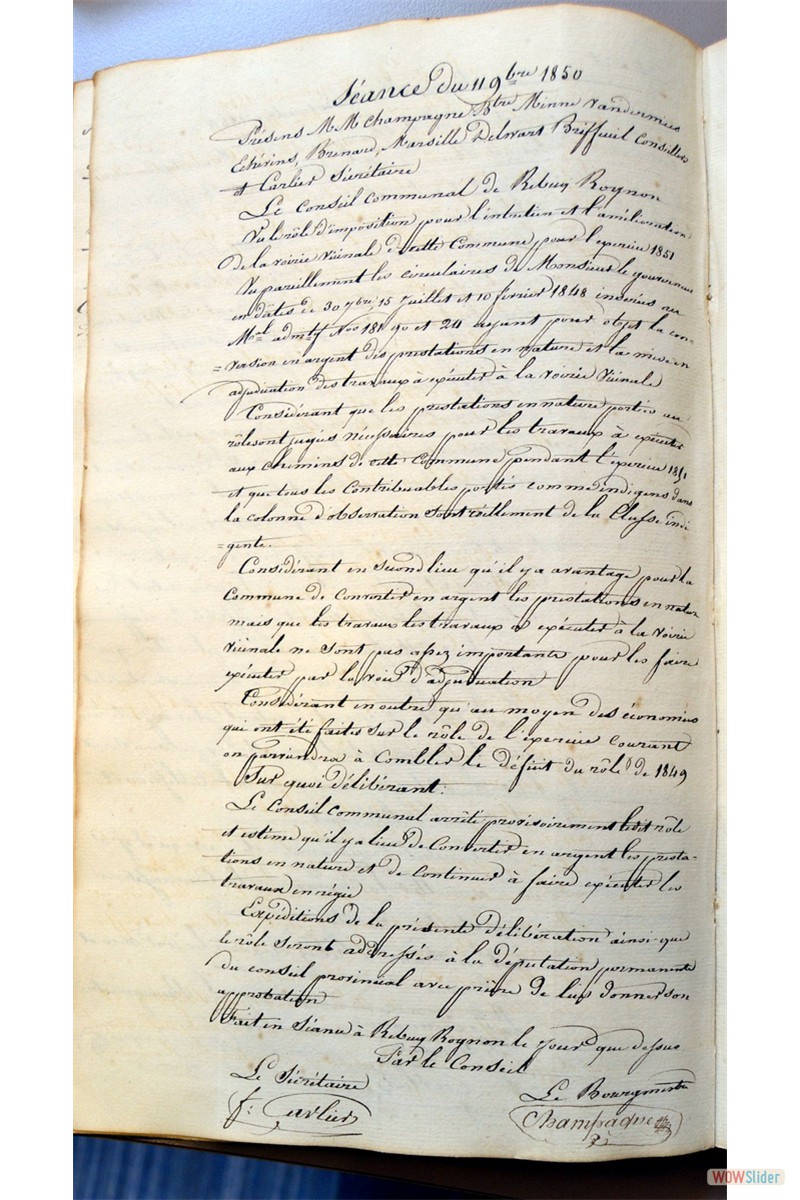 Séance du 11 9bre 1850
Présens MM Champagne Btre Minne Vandermies
Echévins, Brenard, Marsille Delwart Briffeuil Conseillers
et Carlier Sécrétaire
Le Conseil Communal de Rebecq Rognon
Vu le rôle d'imposition pour l'entretien et l'amélioration
de la voirie vicinale de cette Commune pour l'exercice 1851
Vu pareillement les circulaires de Monsieur le gouverneur
en dates de 30 7bre 15 Juillet et 10 février 1848 inserées au
Mal admtif Nos 181 90 et 24 ayant pour objet la con-
=version en argent des prestations en nature et la mise en
adjudication des travaux à exécuter à la voirie vicinale
Considérant que les prestations en nature portées au
rôle sont jugées nécessaires pour les travaux à exécuter
aux chemins de cette Commune pendant l'exercice 1851
et que tous les Contribuables portés comme indigens dans
la colonne d'observation sont réellement de la Classe indi
=gente.
Considérant en second lieu qu'il y a avantage pour la
Commune de Convertir en argent les prestations en nature
mais que les travaux les travaux à exécuter à la voirie
vicinale ne sont pas assez importants pour les faire
exécuter par la voie d'adjudication
Considérant en outre qu'au moyen des économies
qui ont été faites sur le rôle de l'exercice courant
on parviendra à Combler le déficit du rôle de 1849
Sur quoi délibérant:
Le Conseil communal arrête provisoirement ledit rôle
et estime qu'il y a lieu de Convertir en argent les presta-
tions en nature et de Continuer à faire exécuter les
travaux en régie
Expéditions de la présente délibération ainsi que
le rôle seront addressés à la députation permanente
du conseil provincial avec prière de lui donner son
approbation
Fait en Séance à Rebecq Rognon le jour que dessus
Par le Conseil
Le Sécrétaire
Le Bourgmestre
f: Carlier
Champagne
WOWSlider